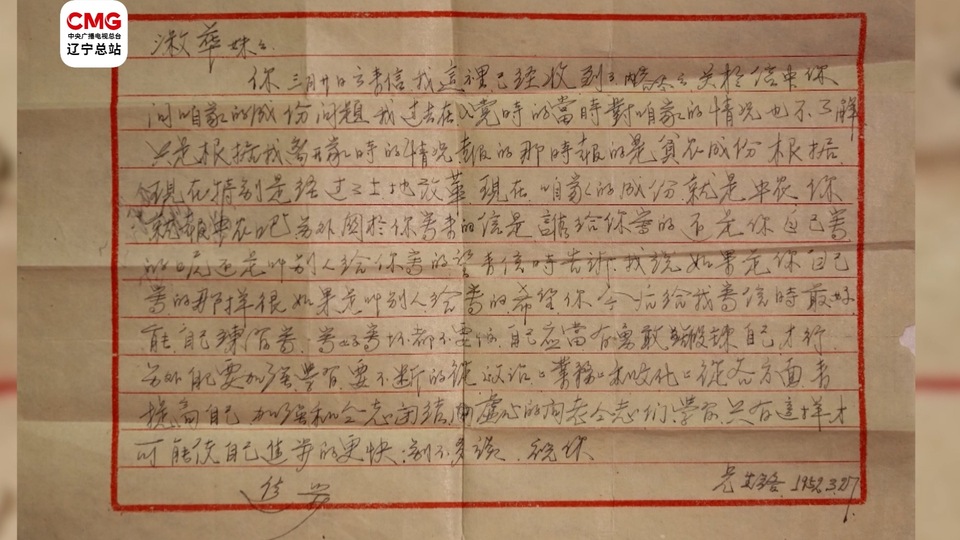 CMG
中央广播电视总台
辽宁总站
淑華妹：
你三月廿日去書信我這裡已經收到了 关於信中你
问咱家的成份问題我过去在入党時的當時對咱家的情况也不了解
只是根据我离开家時的情况報的那時報的是貧农成份根据
現在情别是经过了土地改革現在咱家的成份就是中农你
就報中农吧另外関於你書来的信是誰給你写的还是你自己書
的呢还是叫别人給你書的望書信時告訴我說如果是你自己
書的那样很如果是叫别人給書的希望你今后給我書信時最好
能自己練習書書好書坏都不要怕自己应當有勇敢鍛煉自己才行
另外配要加强學習要不断的從政治业務和文化从各方面者
提高自己加强和仝志团結虚心的向老仝志们學習只有這样才
可能使自己進步的更快别不多談祝你
進步
兄 1952.3.27.